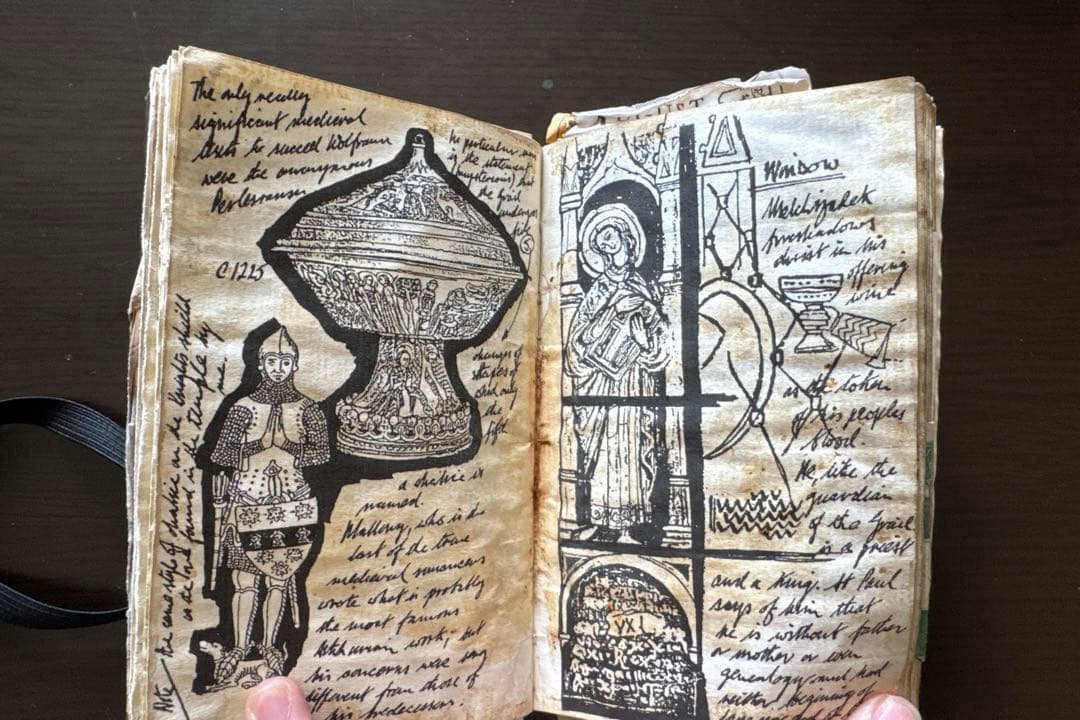 The only really
significant medieval
texts to succeed Wolfram
were the anonymous
Perlesvaus
C.1225
the particular
is the statement
(mysterious) that
the Grail
undergoes
five
5
a
changes of
shapes of
which only
the
fifth
a chalice is
named.
Mallory, who is the
last of the true
medieval romancers
wrote what is probably
the most famous
Arthurian work; but
his concerns were very
different from those of
his predecessors.
Note
the same steps of
in the temple by
me
AUGUST
WINDOW
Melchizadek
foreshadows
christ in his
offering
wine
as the token
of his peoples
blood.
He, like the
guardian
of the Grail
is a priest
and a King. St Paul
says of him that
he is without father
or mother or even
genealogy and had
neither beginning of
VXL